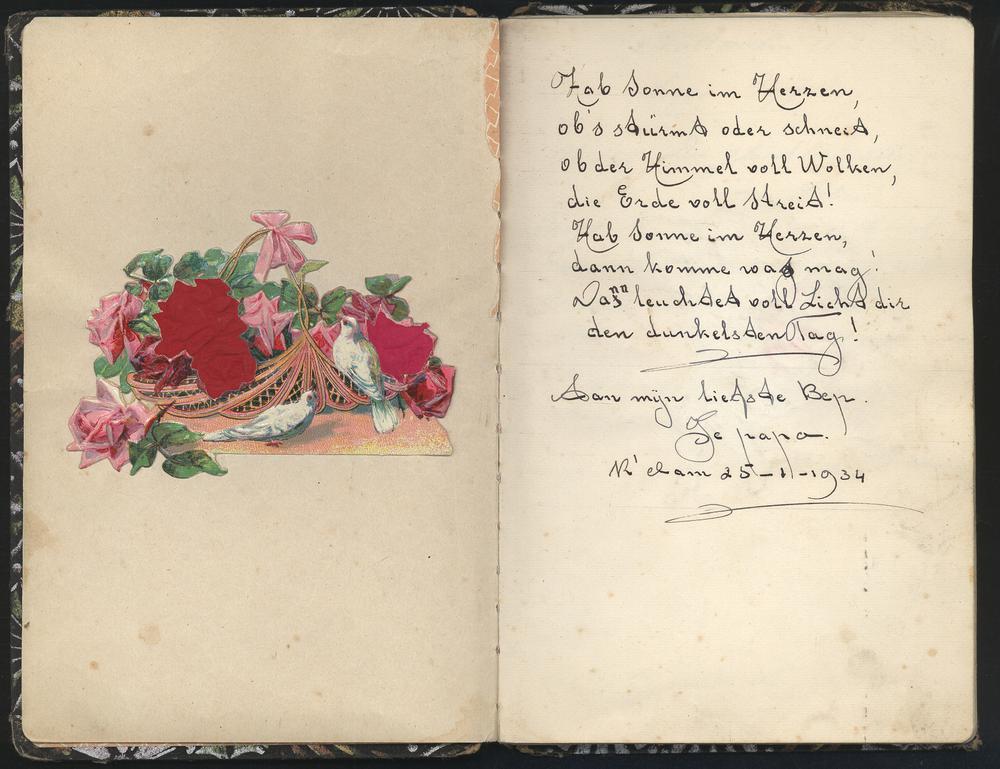 Hab Sonne im Herzen,
ob's stürmt oder schneit,
ob der Himmel voll Wolken,
die Erde voll Streit!
Hab Sonne im Herzen,
dann komme was mag!
Dann leuchtet voll Licht dir
den dunkelsten Tag!
Aan mijn liefste Bep.
Je papa.
R'dam 25-11-1934